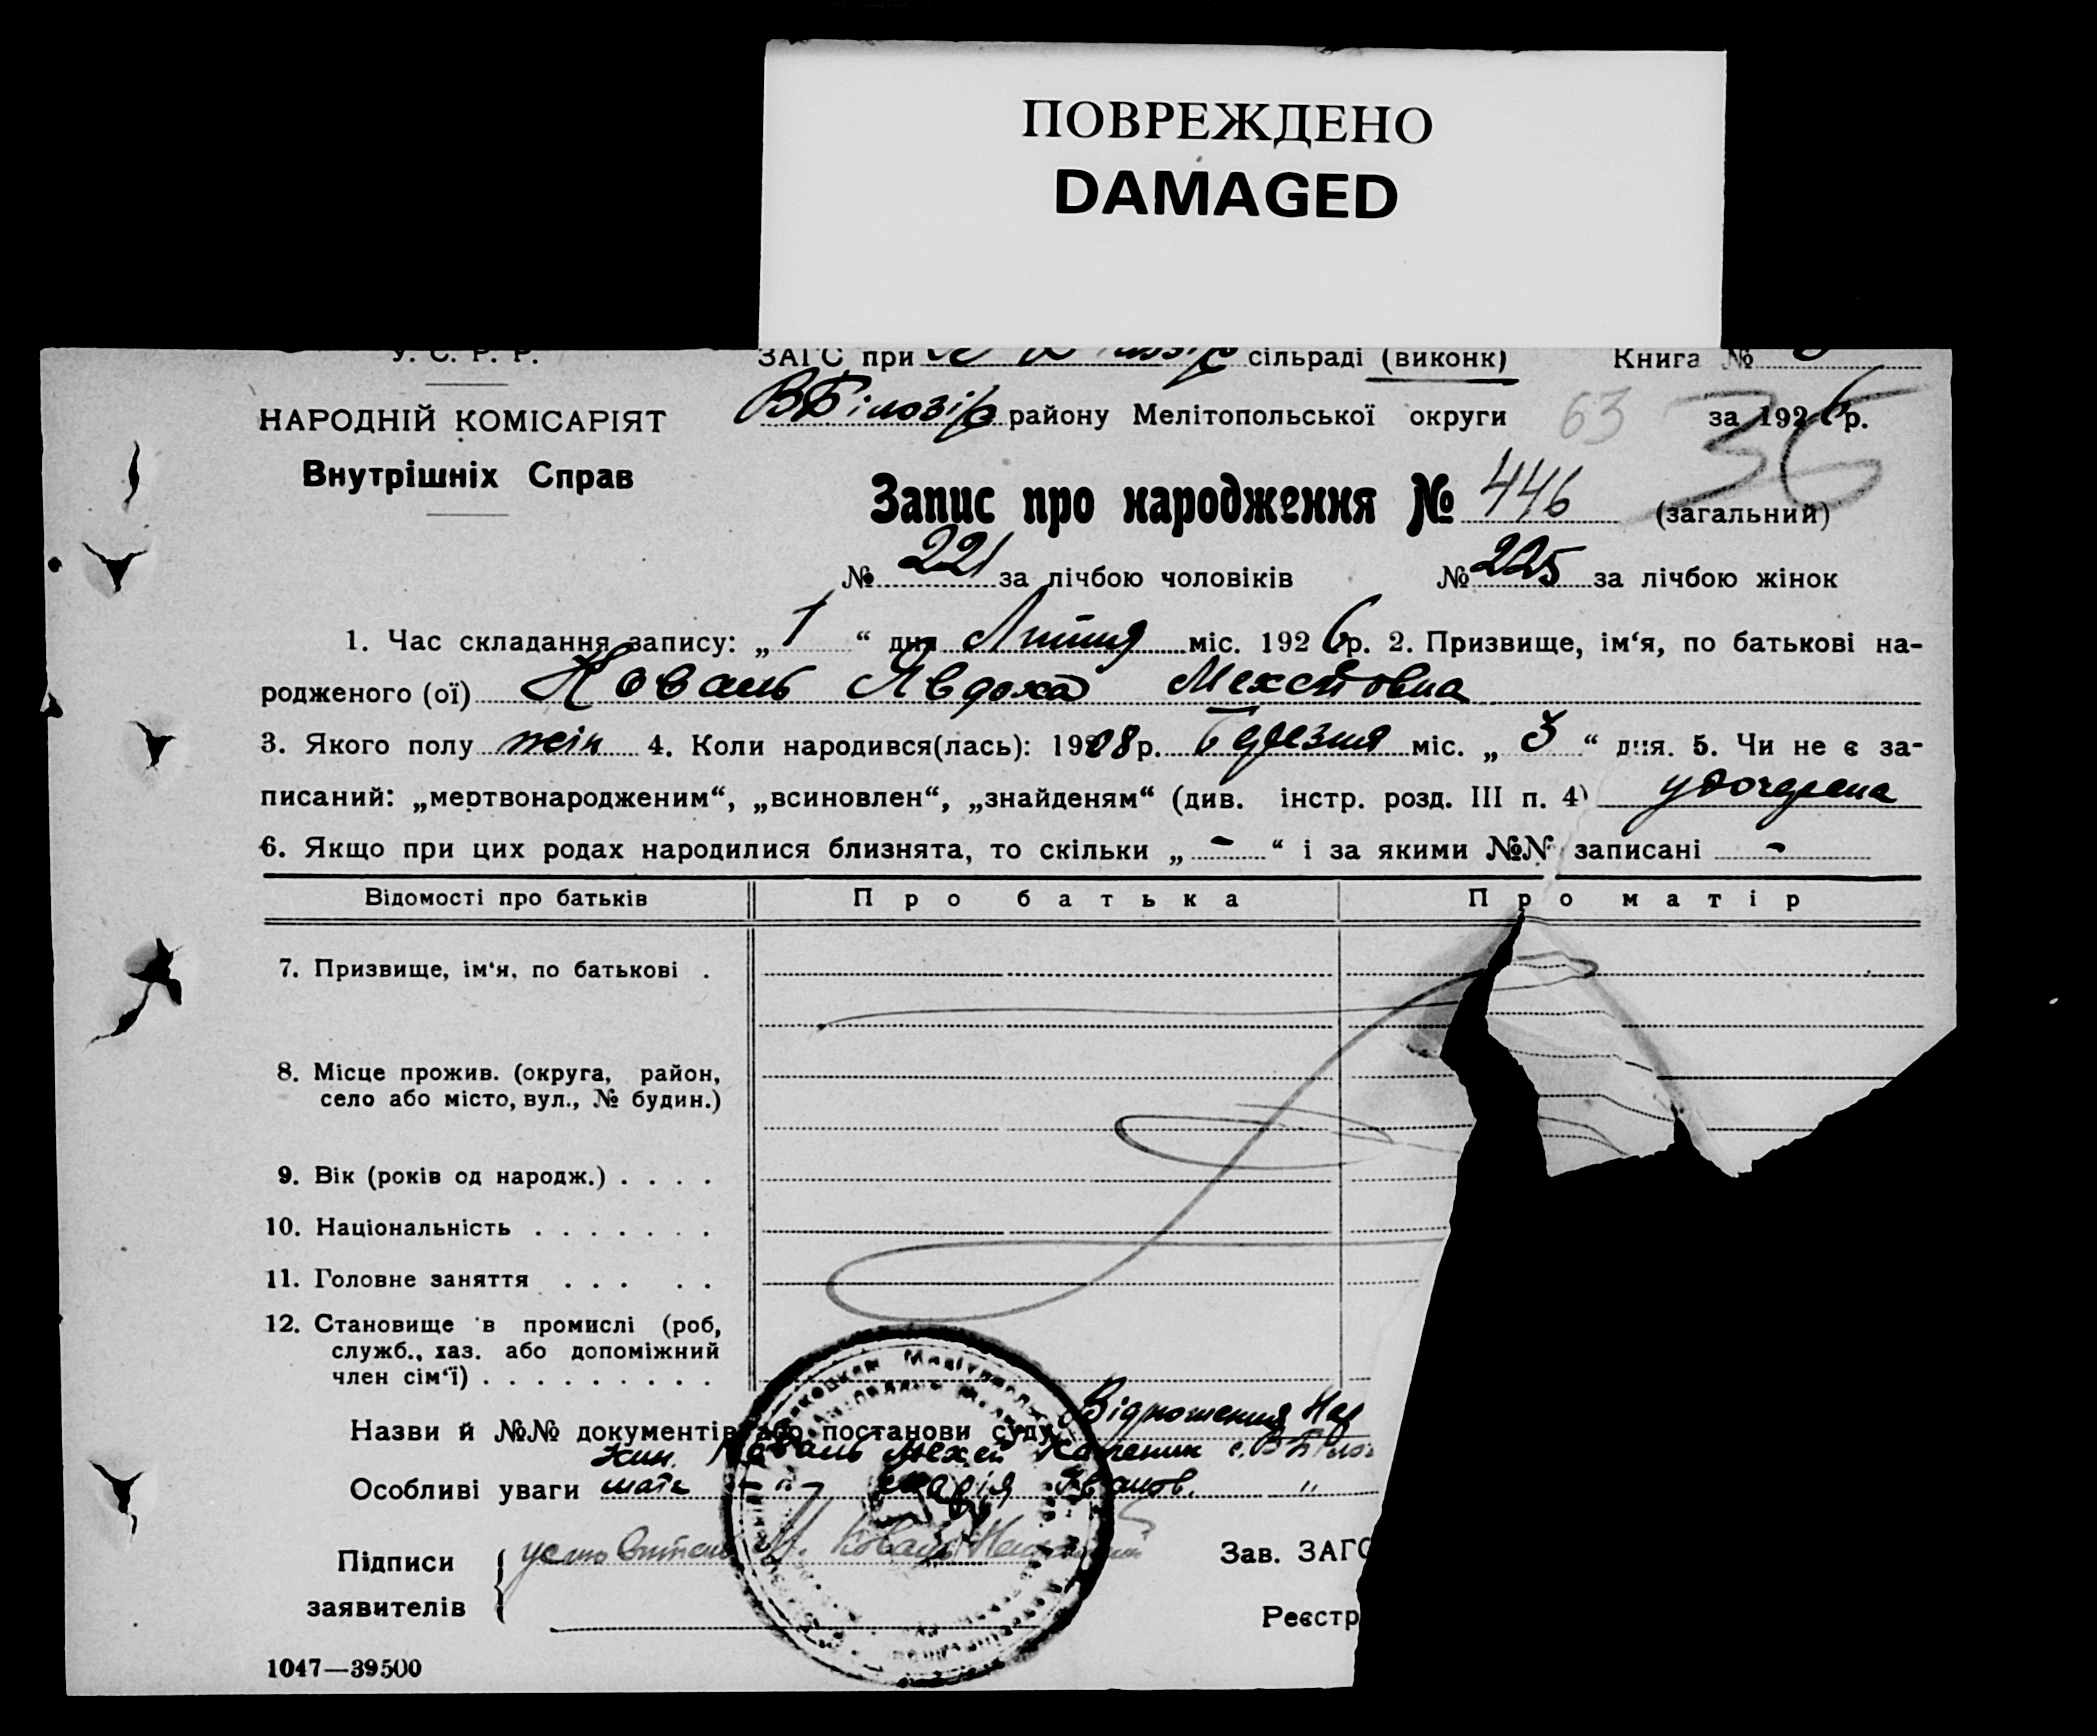 ПОВРЕЖДЕНО
DAMAGED
У. С. Р. Р.
ЗАГС при сільраді (виконк) Книга №
НАРОДНІЙ КОМІСАРІЯТ
Внутрішніх Справ
В Білозір району Мелітопольської округи 63 за 1926 р.
36
Запис про народження № 446 (загальний)
№ 221 за лічбою чоловіків № 225 за лічбою жінок
1. Час складання запису: „ 1 “ дня Липня міс. 1926 р. 2. Призвище, ім‘я, по батькові на-
родженого (ої) Коваль Явдоха
3. Якого полу жін 4. Коли народився(лась): 1908 р. Березня міс. „ 3 “ дня. 5. Чи не є за-
писаний: „мертвонародженим“, „всиновлен“, „знайденям“ (див. інстр. розд. III п. 4) удочерена
6. Якщо при цих родах народилися близнята, то скільки „ - “ і за якими №№ записані -
Відомості про батьків Про батька Про матір
7. Призвище, ім‘я, по батькові .
8. Місце прожив. (округа, район,
село або місто, вул., № будин.)
9. Вік (років од народж.) . . . .
10. Національність . . . . . . .
11. Головне заняття . . . . .
12. Становище в промислі (роб,
служб., хаз. або допоміжний
член сім‘ї) . . . . . . . . .
Назви й №№ документів або постанови суду Відношення
Коваль
Особливі уваги мати -"- Марія "
Підписи
заявителів
Коваль
Зав. ЗАГС
Реєстр
1047—39500